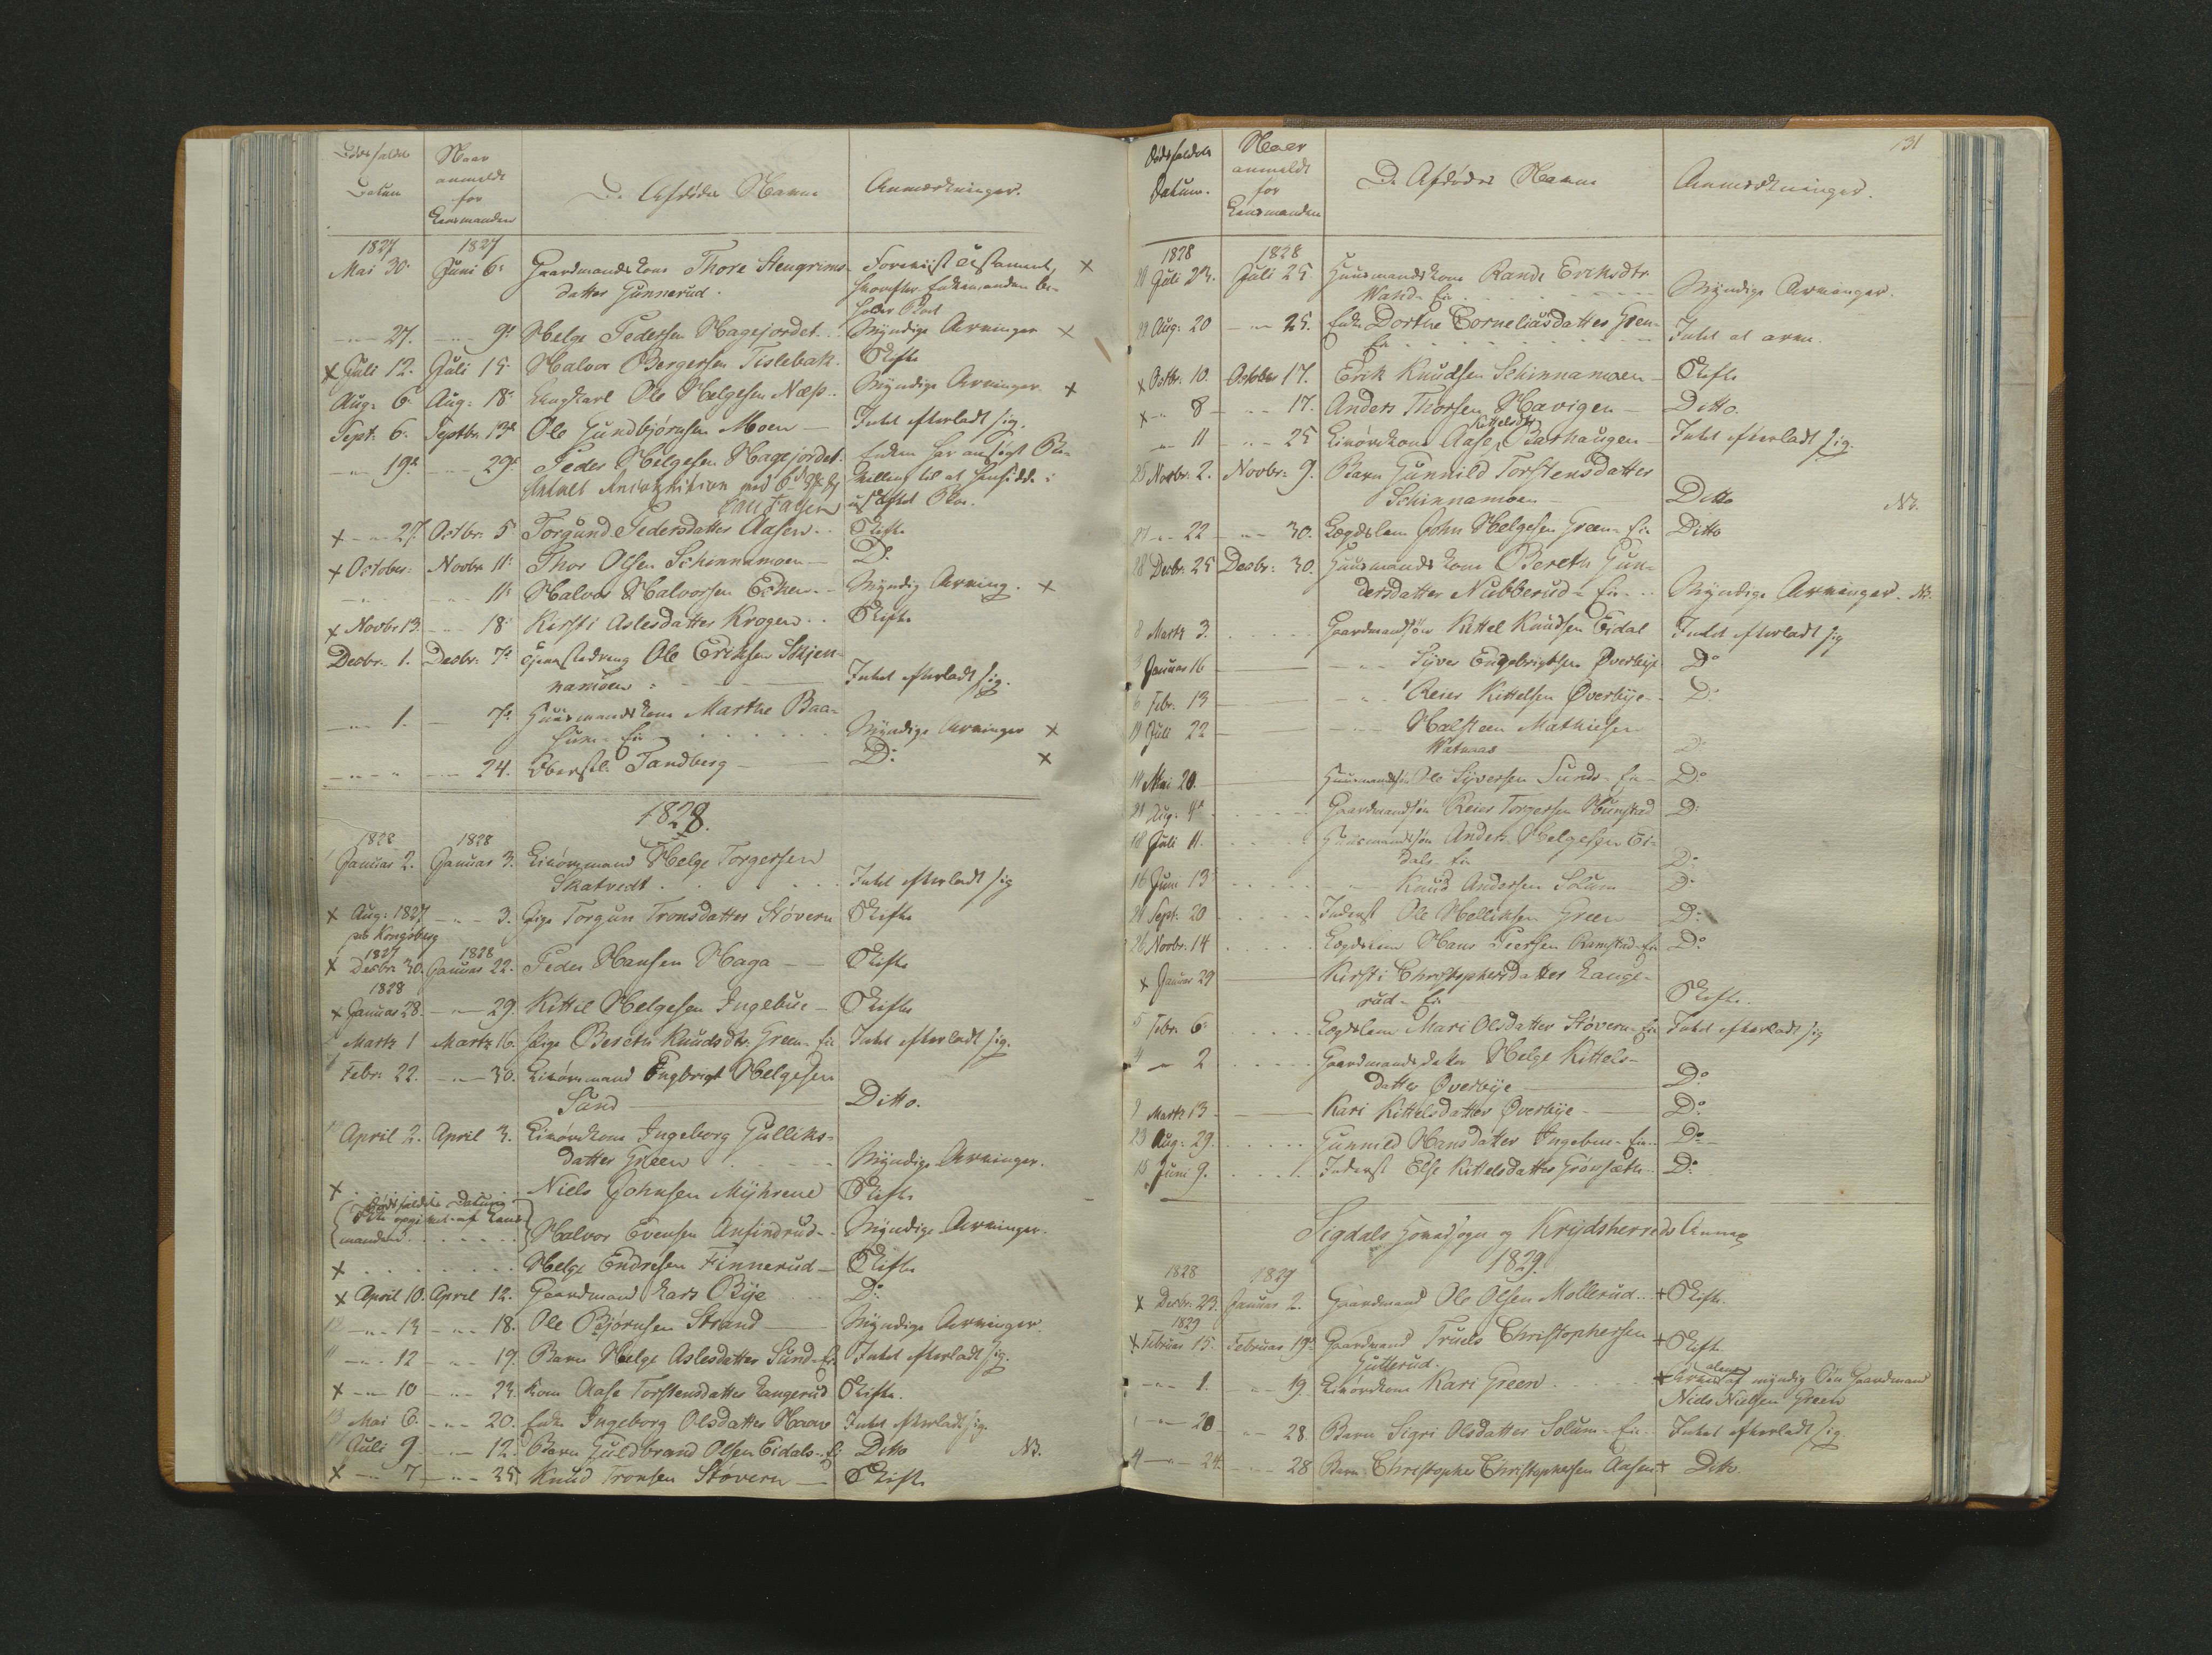 Dødsfaldets
Datum
Naar
anmeldt
for
Lensmanden
De Afdødes Navne
Anmærkninger.
1827 1827
Mai 30. Juni 6. Gaardmandskone Thore Stengrims- Foreviist Testament, ×
datter Gunnerud. hvorefter Enkemanden be-
holder Boet
-"- 27. -"- 9de Helge Pedersen Hagejordet.. Myndige Arvinger ×
× Juli 12. Juli 15. Halvor Bergersen Tislebak. Skifte
Aug: 6. Aug: 18. Ungkarl Ole Helgesen Næss.. Myndige Arvinger ×
Sept. 6. Septbr. 13de Ole Gundbjørnsen Moen — Intet efterladt sig.
-"- 19de -"- 29de Peder Helgesen Hagejordet. Enken har ansøgt Be-
villing til at hensidde i
uskiftet Boe.
× -"- 27. Octbr: 5 Torgund Pedersdatter Aasen.. Skifte
× October: Novbr. 11. Thor Olsen Schinnamoen — Do
-"- -"- 11. Halvor Halvorsen Echern.. Myndig Arving. ×
× Novbr 13. -"- 18. Kirsti Aslesdatter Krogen.. Skifte
Decbr. 1. Decbr: 7de Tjenestedreng Ole Eriksen Skjen-
namoen Intet efterladt sig.
-"- 1. — 7de Huusmandskone Marthe Baa-
hum-Eie Myndige Arvinger ×
-"- -"- 24. Oberstl. Tandberg — Do ×
1828.
1828 1828
Januar 2. Januar 3. Livøremand Helge Torgersen
Skatvedt. Intet efterladt sig
× Aug: 1827 -"- 3. Pige Torgun Tronsdatter Støvern Skifte
paa Kongsberg
1827 1828
× Decbr 30. Januar 22. Peder Hansen Haga — Skifte
1828
× Januar 28. -"- 29. Kittil Helgesen Ingebue — Skifte
Martz 1 Martz 16. Pige Berethe Knudsdtr. Green-Eie Intet efterladt sig.
Febr: 22. -"- 30. Livøremand Engbrigt Helgesen
Sund — Ditto.
April 2. April 3. Livørekone Ingeborg Gulliks-
datter Green Myndige Arvinger.
× Niels Johnsen Myhrene Skifte
Dødsfaldets Datum
ikke opgivet af Lens-
manden Halvor Evensen Anfindrud.. Myndige Arvinger.
× Helge Endresen Finnerud — Skifte
× April 10. April 12. Gaardmand Lars Bye Do
12 -"- 13 -"- 18. Ole Bjørnsen Strand — Myndige Arvinger.
11 -"- 12 -"- 19. Barn Helge Aslesdatter Sund-Eie Intet efterladt sig.
× -"- 10 -"- 23. Kone Aase Torstensdatter Langerud Skifte.
13 Mai 6. -"- 20. Enke Ingeborg Olsdatter Haave Intet efterladt sig.
Juli 9. -"- 12. Barn Guldbrand Olsen Eidals-Eie Ditto NB.
× -"- 7 -"- 25 Knud Tronsen Støvern — Skifte
131
Dødsfaldets
Datum.
Naar
anmeldt
for
Lensmanden
De Afdødes Navne
Anmærkninger.
1828 1828
Juli 23. Juli 25 Huusmandskone Rande Eriksdtr.
Wand-Eie Myndige Arvinger.
22 Aug: 20 -"- 25. Enke Dorthe Corneliusdatter Green-
Eie Intet at arve.
× Octbr. 10. October 17. Erik Knudsen Schinnamoen — Skifte
× -"- 8 -"- 17. Anders Thorsen Havigen — Ditto.
Kittelsdtr
-"- 11 -"- 25 Livørekone Aase Barhaugen — Intet efterladt sig.
25 Novbr. 2. Novbr: 9. Barn Gunnild Torstensdatter
Schinnamoen — Ditto NB.
27 -"- 22 -"- 30. Lægdslem John Helgesen Green-Eie Ditto
28 Decbr: 25 Decbr: 30. Huusmandskone Berethe Gun-
dersdatter Nubberud-Eie.. Myndige Arvinger. NB.
8 Martz 3. Gaardmandsøn Kittel Knudsen Eidal Intet efterladt sig
3 Januar 16 — -"- Syver Engebrigtsen Øverbye Do
6 Febr. 13 -"- Reier Kittelsen Øverbye.. Do
19 Juli 22 -"- Halsten Mathiesen
Watnaas Do
14 Mai 20. Huusmandsøn Ole Syversen Sunds-Eie — Do
21 Aug. 4de Gaardmandsøn Reier Torgersen Hunstad Do
18 Juli 11. Huusmandsøn Anders Helgesen Ei-
dals-Eie Do
16 Juni 13 -"- Knud Andersen Solum — Do
24 Sept. 20 Inderst Ole Helliksen Green — Do
26 Novbr. 14 Lægdslem Hans Peersen Ramstad-Eie Do
× Januar 29 Kirsti Christophersdatter Lange-
rud-Eie Skifte.
5 Febr. 6. Lægdslem Mari Olsdatter Støvern-Eie Intet efterladt sig
4 -"- 2 Gaardmandsdatter Helge Kittels-
datter Øverbye — Do
9 Martz 13 Kari Kittelsdatter Øverbye — Do
23 Aug: 29. Gunnild Hansdatter Ingebue-Eie.. Do
15 Juni 9. Inderst Else Kittelsdatter Grønsæth.. Do
Sigdals Hovedsogn og Krydsherreds Annex
1829.
1828 1829
× Decbr: 23. Januar 2. Gaardmand Ole Olsen Mollerud... + Skifte.
1829
× Februar 15. Februar 19. Gaardmand Truels Christophersen + Skifte
Gutterud.
-"- 1. -"- 19. Livørekone Kari Green + Arves alene af myndig Søn Gaardmand
Niels Nielsen Green
-"- 20 -"- 28. Barn Sigri Olsdatter Solum-Eie.. Intet efterladt sig.
4 -"- 24. -"- 28 Barn Christopher Christophersen Aasen + Ditto.